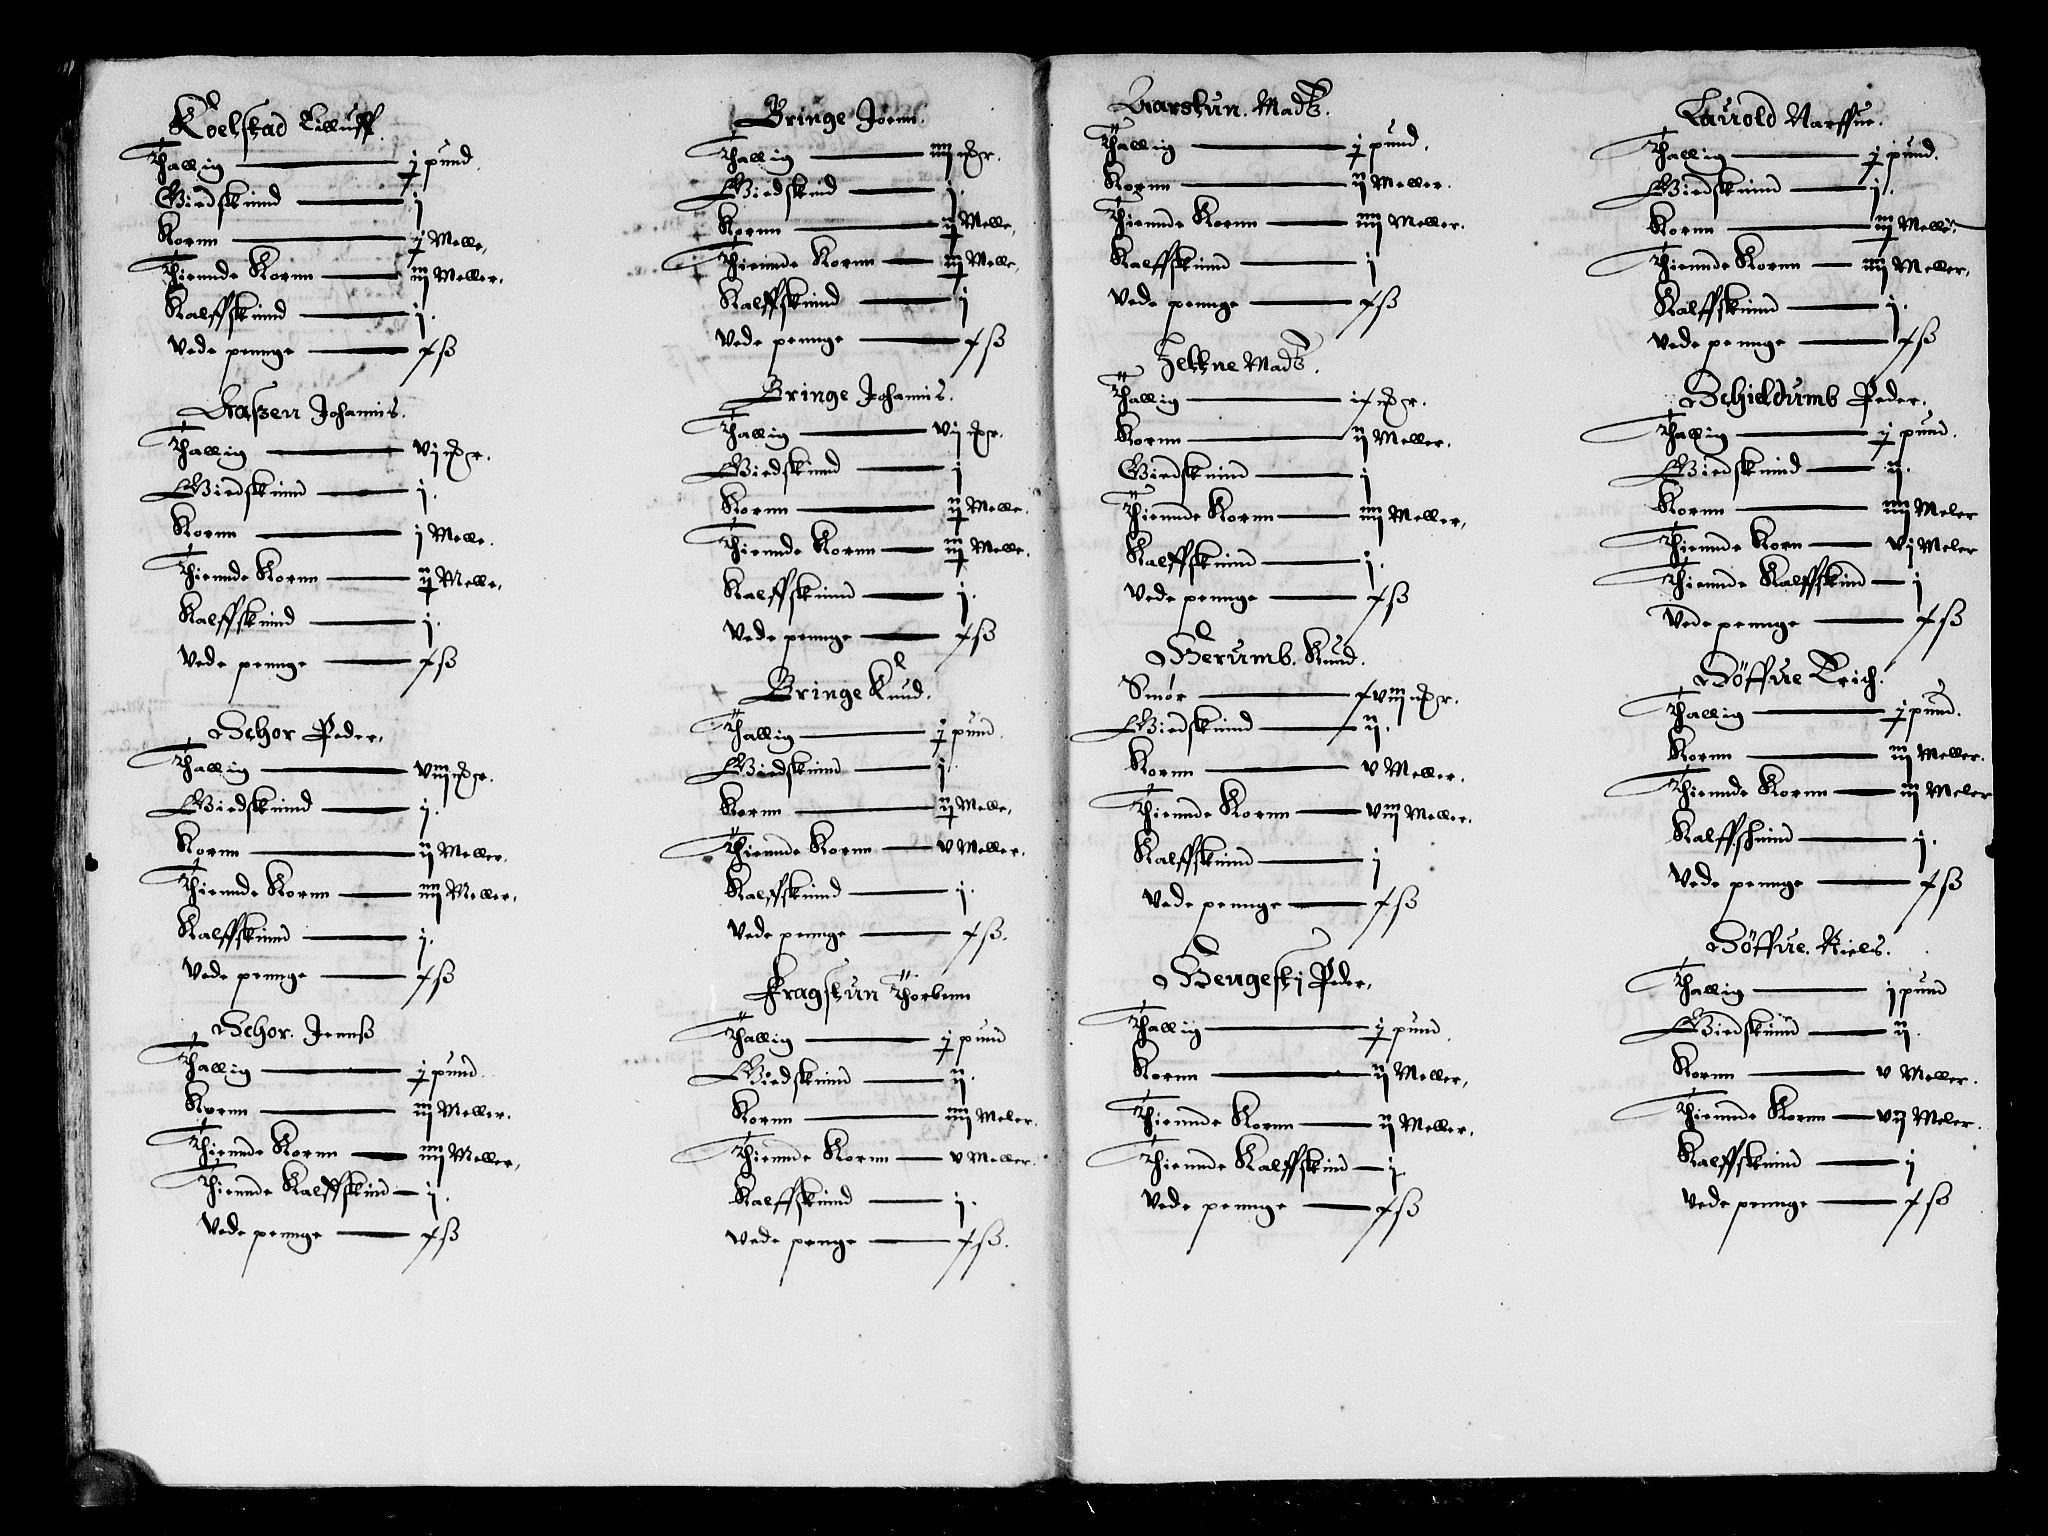 Koelstad Elluff.
Thallig — j pund.
Giedskind — j
Kornn — j Melle,
Thiennde Kornn — iiij Meller,
Kalffskind — j.
Vede pennge — 1 ß
Aaßen Johannis.
Thallig — vj mkr.
Giedskind — j.
Kornn — j Melle.
Thiennde Kornn — ij Melle,
Kalffskind — j.
Vede pennge — 1 ß
Schor Peder,
Thallig — viij mkr.
Giedskind — j.
Kornn — ij Meller.
Thiennde Kornn — iiij Meller,
Kalffskind — j.
Vede pennge — 1 ß
Schor. Jennß
Thallig — j pund.
Kornn — iij Meller.
Thiennde Kornn — iiij Meller,
Thiennde Kalffskind — j.
Vede pennge — 1 ß
Bringe Joenn.
Thallig — iiij mkr.
Giedskind — j.
Kornn — ij Melle,
Thiennde Kornn — iij Melle,
Kalffskind — j
Vede pennge — 1 ß
Bringe Johannis.
Thallig — vj mkr.
Giedskind — j
Kornn — ij Melle.
Thiennde Kornn — iij Melle.
Kalffskind — j.
Vede pennge — 1 ß
Bringe Knud.
Thallig — j pund.
Giedskind — j.
Kornn — ij Melle,
Thiennde Kornn — v Meller.
Kalffskind — j.
Vede pennge — 1 ß.
Fragstun Thorbenn
Thallig — j pund
Giedskind — ij.
Kornn — iiij Meler.
Thiennde Kornn — v Meller.
Kalffskind — j.
Vede penge — 1 ß.
Aarstun. Madtz.
Thallig — j pund.
Kornn — ij Meller.
Thiennde Kornn — iiij Meller.
Kalffskind — j
Vede pennge — 1 ß
Zettne Madtz.
Thallig — mkr.
Kornn — ij Meller.
Giedskind — j
Thiennde Kornn — iiij Meller,
Kalffskind — j.
Vede pennge — 1 ß
Berumb. Knud.
Smør — mkr.
Giedskind — ij.
Kornn — v Meller.
Thiennde Kornn — viij Meller.
Kalffskind — j
Vede pennge — 1 ß
Bengestj Peder,
Thallig — j pund.
Kornn — ij Meller,
Thiennde Kornn — ij Meller,
Thiennde Kalffskind — j.
Vede pennge — 1 ß
Laurold Narffue.
Thallig — j pund.
Giedskind — j.
Kornn — iij Melle.
Thiennde Kornn — iiij Meller,
Kalffskind — j.
Vede pennge — 1 ß
Schieldumb Peder.
Thallig — j pund.
Giedskind — ij.
Kornn — iiij Meler
Thiennde Korn — vj Meler
Thiennde Kalffskind — j
Vede pennge — 1 ß
Høffue Erich.
Thallig — j pund.
Kornn — iij Meller.
Thiennde Kornn — iij Meler
Kalffskind — j.
Vede pennge — 1 ß
Høffue. Niels.
Thallig — j pund
Giedskind — ij.
Kornn — v Meller.
Thiennde Kornn — vij Meler.
Kalffskind — j
Vede pennge — 1 ß